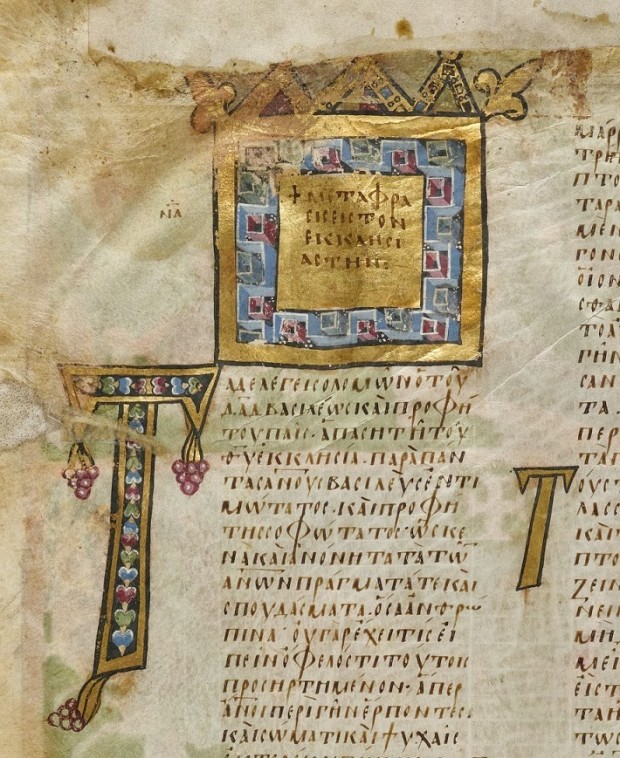 ΝΑ
+ ΜΕΤΑΦΡΑ
ϹΙϹ ΕΙϹ ΤΟΝ
ΕΚΚΛΗϹΙ
ΑϹΤΗΝ:
ΤΑΔΕ ΛΕΓΕΙ ϹΟΛΟΜΩΝ Ο ΤΟΥ
ΔΑΔ ΒΑϹΙΛΕΩϹ ΚΑΙ ΠΡΟΦΗ
ΤΟΥ ΠΑΙϹ· ΑΠΑϹΗ ΤΗ ΤΟΥ
ΘΥ ΕΚΚΛΗϹΙΑ· ΠΑΡΑ ΠΑΝ
ΤΑϹ ΑΝΟΥϹ ΒΑϹΙΛΕΥϹ ΕΝΤΙ
ΜΩΤΑΤΟϹ· ΚΑΙ ΠΡΟΦΗ
ΤΗϹ ϹΟΦΩΤΑΤΟϹ· ΩϹ ΚΕ
ΝΑ ΚΑΙ ΑΝΟΝΗΤΑ ΤΑ ΤΩ
ΑΝΩΝ ΠΡΑΓΜΑΤΑ ΤΕ ΚΑΙ
ϹΠΟΥΔΑϹΜΑΤΑ· ΟϹΑ ΑΝΘΡΩ
ΠΙΝΑ· ΟΥ ΓΑΡ ΕΧΕΙ ΤΙϹ ΕΙ
ΠΕΙΝ ΟΦΕΛΟϹ ΤΙ ΤΟΥΤΟΙϹ
ΠΡΟϹΗΡΤΗΜΕΝΟΝ· ΑΠΕΡ
ΑΝΟΙ ΠΕΡΙ ΓΗΝ ΕΡΠΟΝΤΕϹ
ΚΑΙ ϹΩΜΑΤΙ ΚΑΙ ΨΥΧΑΙϹ
ΤΡΗ
ΠΤΟ
ΤΑΡΑ
ΜΕΙ
ΓΟΝ
ΟΙΟΝ
ϹΦΑ
ΤΟΛ
ΓΗΝ
ϹΑΝ
ΤΑ
ΠΕΡ
ΤΑΓ
ΤΟΥϹ
ΛΑϹ
ΚΑΙ
ΠΤΟ
ΖΕΙΝ
ΝΕΙ
ΜΗΔ
ΜΕΙ
ΕΙϹΤ
ΤΑΗ
ΤΩϹ